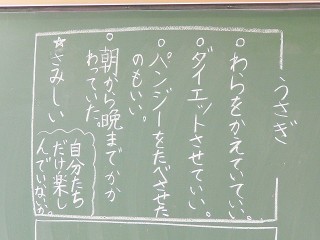 うさぎ
○わらをかえていてい。
○ダイエットさせていい。
○パンジーをたべさせた
のもいい。
○朝から晩までかか
わっていた。
☆さみしい
自分たち
だけ楽し
んでいないか。